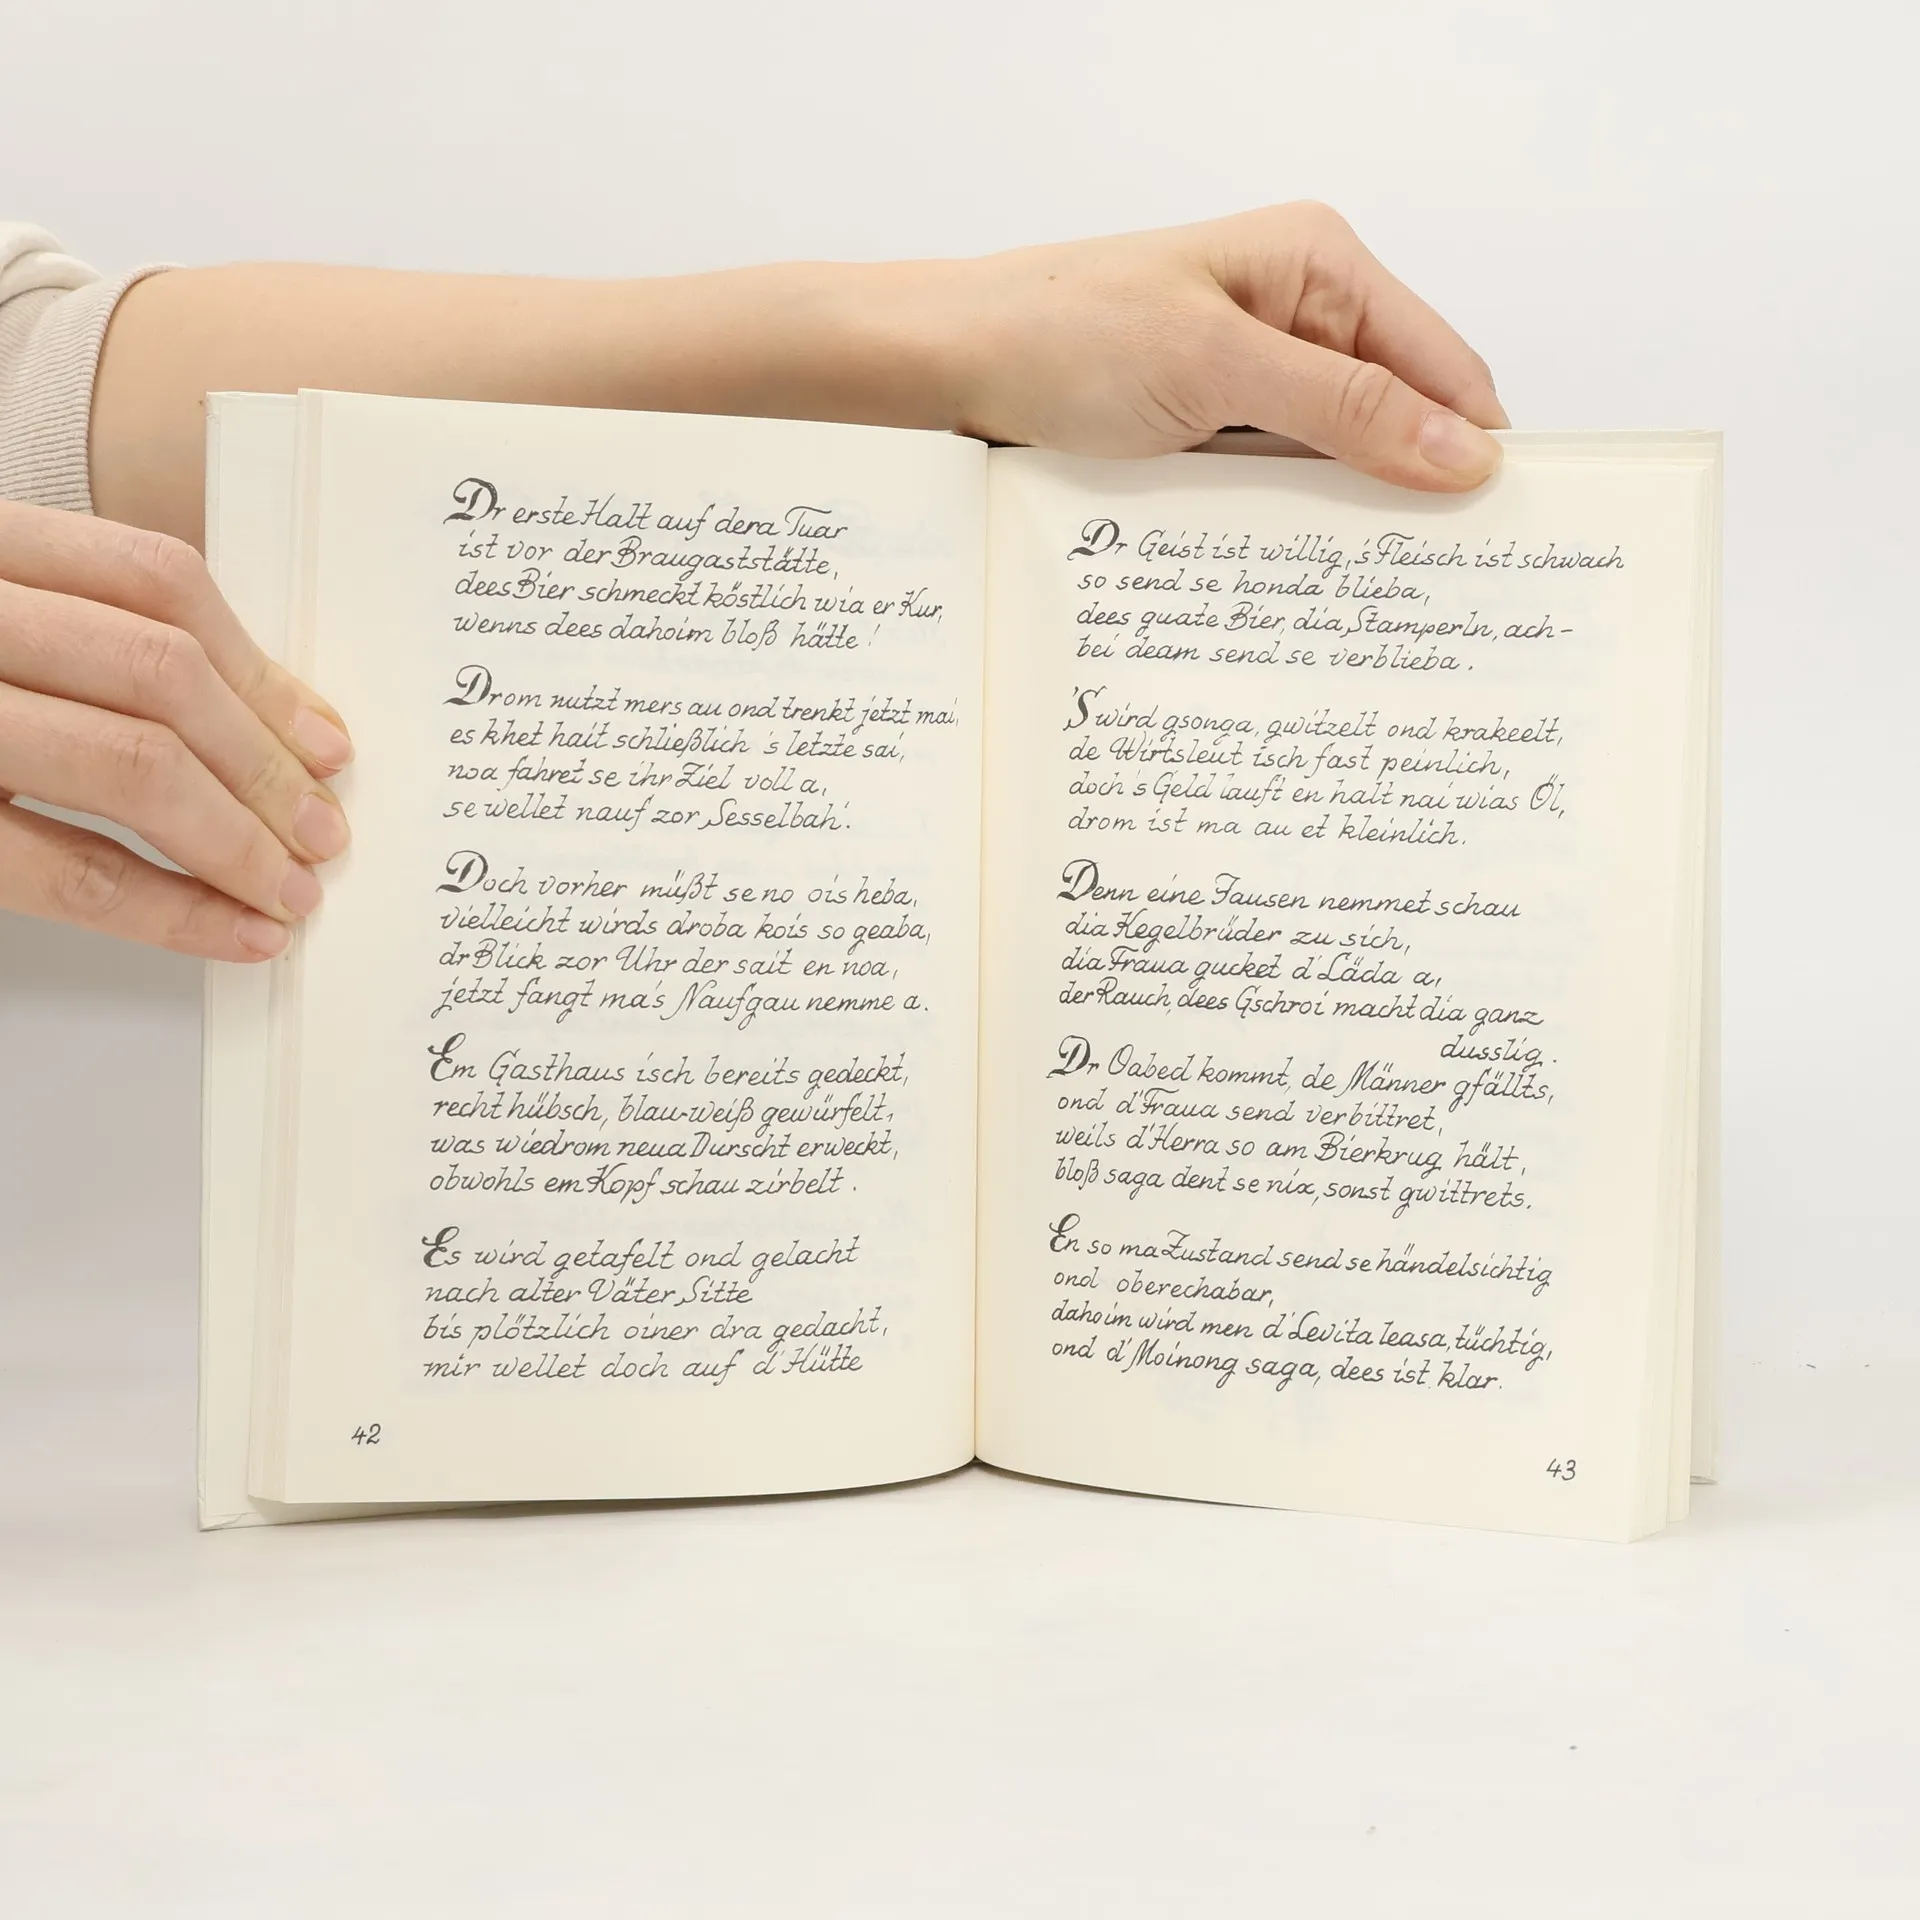 Dr erste Halt auf dera Tuar
ist vor der Braugaststätte,
dees Bier schmeckt köstlich wia er Kur,
wenns dees dahoim bloß hätte!
Drom nutzt mers au ond trenkt jetzt mai,
es khet hait schließlich 's letzte sai,
noa fahret se ihr Ziel voll a,
se wellet nauf zor Sesselbah'.
Doch vorher müßt se no ois heba,
vielleicht wirds droba kois so geaba,
dr Blick zor Uhr der sait en noa,
jetzt fangt ma's Naufgau nemme a.
Em Gasthaus isch bereits gedeckt,
recht hübsch, blau-weiß gewürfelt,
was wiedrom neua Durscht erweckt,
obwohls em Kopf schau zirbelt.
Es wird getafelt ond gelacht
nach alter Väter Sitte
bis plötzlich oiner dra gedacht,
mir wellet doch auf d'Hütte
42
Dr Geist ist willig, 's Fleisch ist schwach
so send se honda blieba,
dees guate Bier, dia Stamperln, ach-
bei deam send se verblieba.
'S wird gsonga, gwitzelt ond krakeelt,
de Wirtsleut isch fast peinlich,
doch 's Geld lauft en halt nai wias Öl,
drom ist ma au et kleinlich.
Denn eine Jausen nemmet schau
dia Kegelbrüder zu sich,
dia Fraua gucket d'Läda a,
der Rauch, dees Gschroi macht dia ganz
dusslig.
Dr Oabed kommt, de Männer gfällts,
ond d'Fraua send verbittret,
weils d'Herra so am Bierkrug hält,
bloß saga dent se nix, sonst gwittrets.
En so ma Zustand send se händelsichtig
ond oberechabar,
dahoim wird men d'Levita leasa, tüchtig,
ond d'Moinong saga, dees ist klar.
43